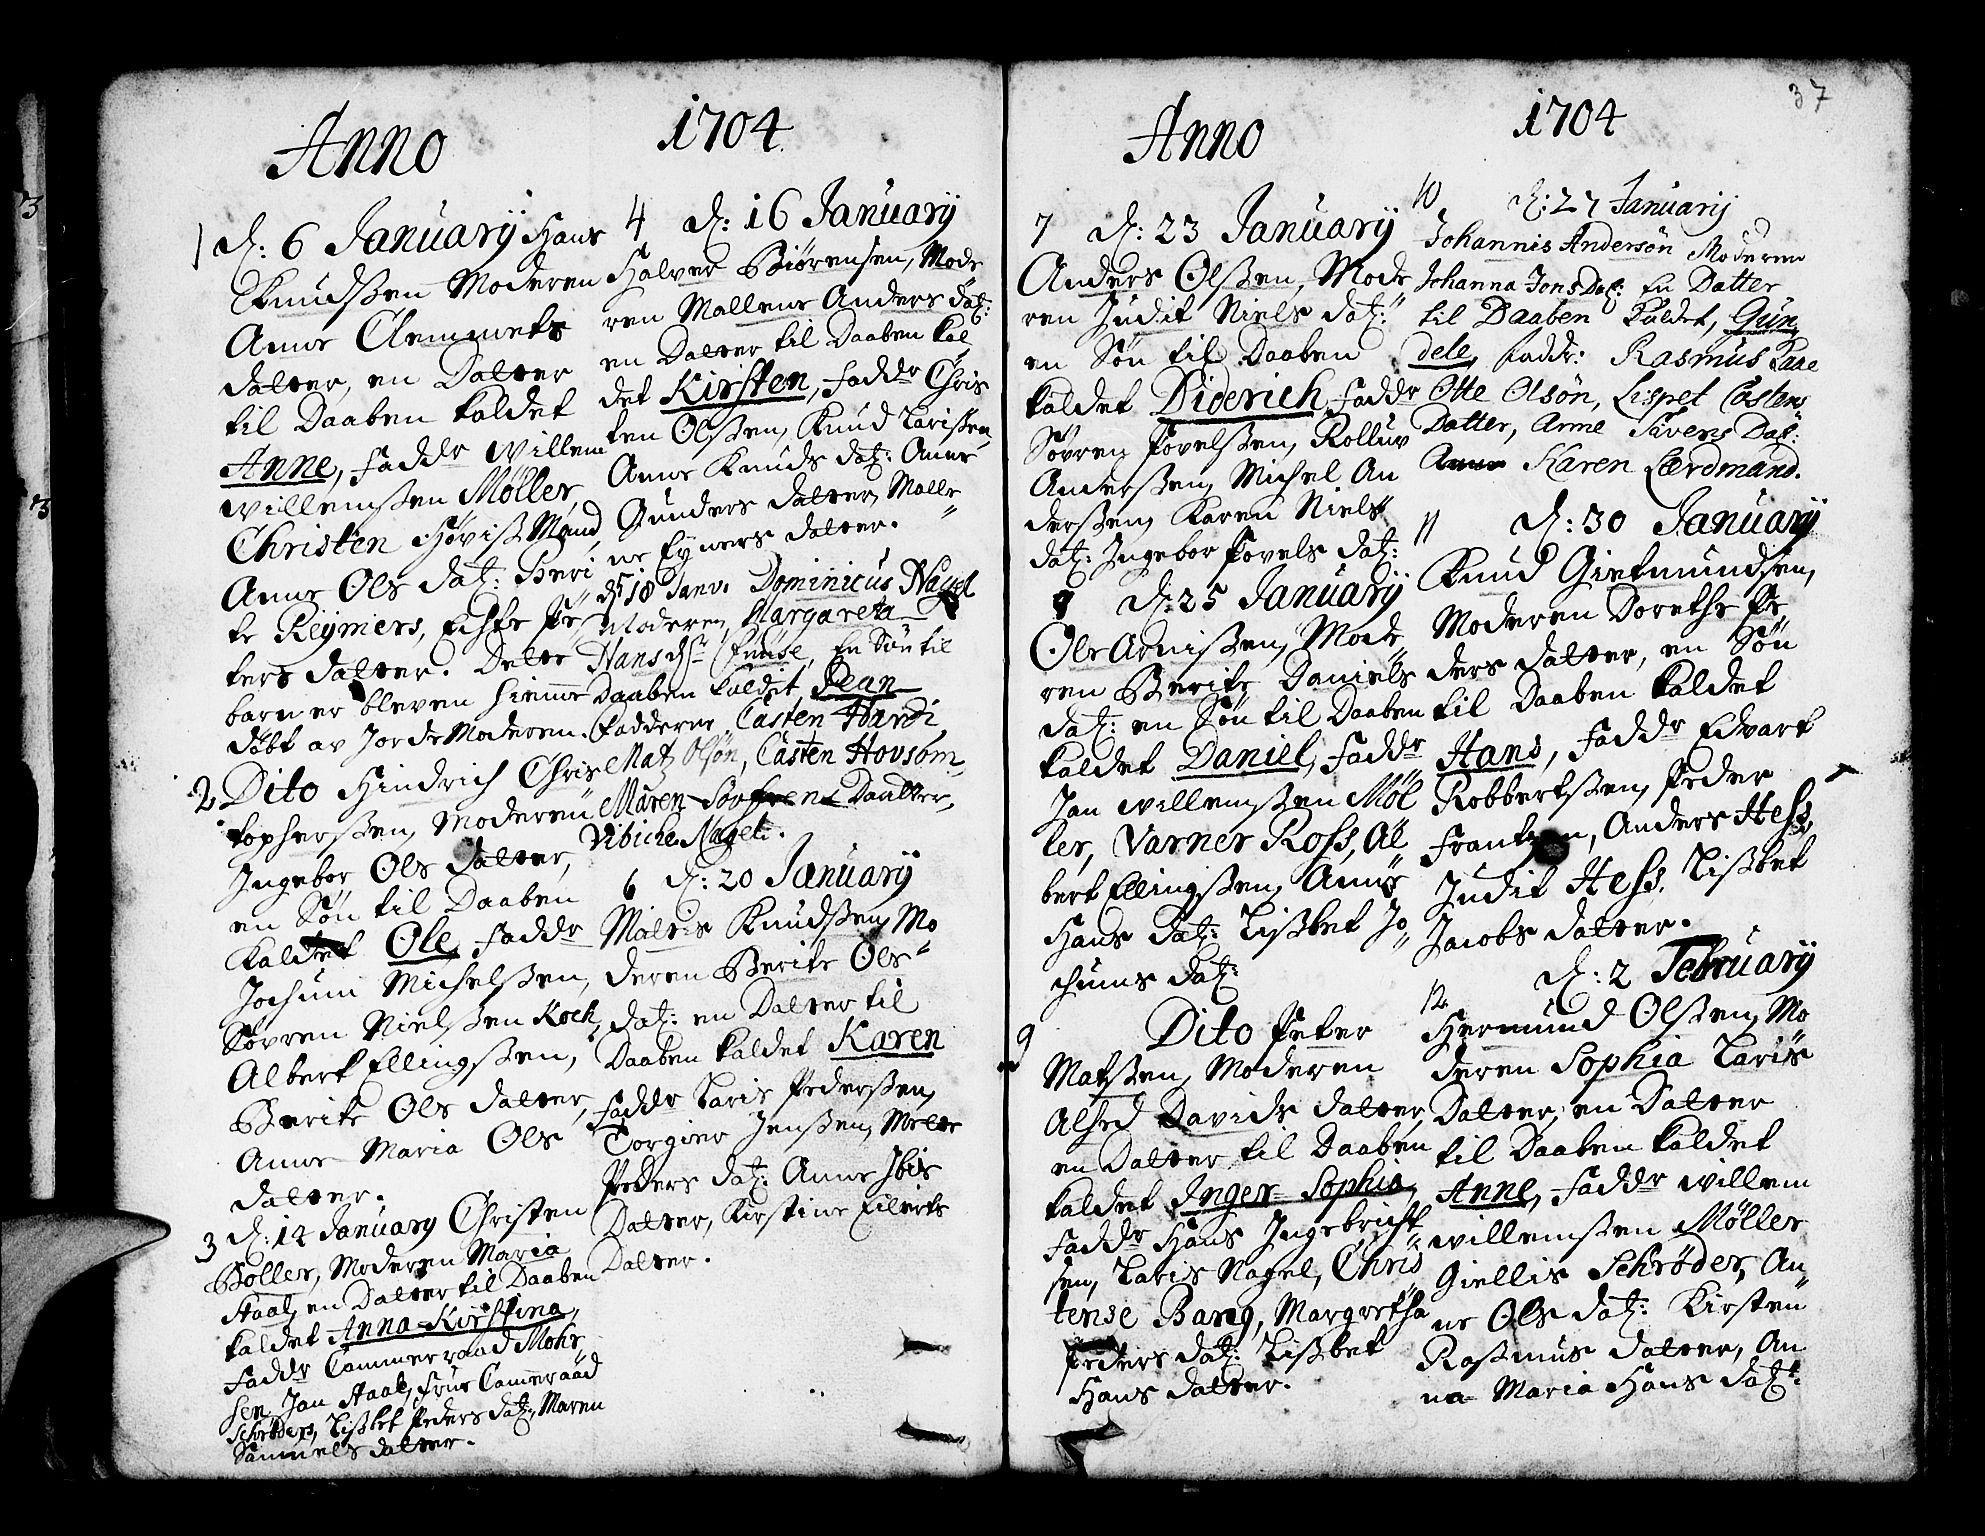 Anno 1704
1 d: 6 Januarÿ Hans
Knudßen Moderen
Anne Clemmets
datter, en Datter
til Daaben kaldet
Anne, Faddr Willem
willemßen Møller,
Christen Høviß Mand,
Anne Ols datz: Beri
te Reÿmers, Pe
ters datter. Dette
barn er bleven hiemme
døbt av Jorde Moderen.
2 Dito Hindrich Chris
topherßen, Moderen
Ingebor Ols datter,
en Søn til Daaben
kaldet Ole, Faddr
Jochum Michelßen,
Søvren Nielßen Kock,
Albert Ellingßen,
Berite Ols datter,
Anne Maria Ols
datter.
3 d: 14 Januarÿ Christen
Böller, Moderen Maria
Staal, en Datter til Daaben
kaldet Anna Kirstina,
Faddr Cammerraad Mohr,
sen, Jan Staal, frue Cameraad
Schröders, Lißbet Peders datz, Maren
Samuels datter.
4 d: 16 Januarÿ
Halver Biörensen, Mode
ren Mallene Anders datz:
en Datter til Daaben kal
det Kirsten, Faddr Chris
ten Olßen, Knud Larißen,
Anne Knuds datz: Anne
Gunders datter, Malle
ne Eyners datter.
d 18 Janv. Dominicus Nagel
Moderen, Margareta
Hans dr , En Søn til
Daaben kaldet, Jean
Fadderne, Casten Hardi,
Matz Olsön, Casten Hovsom,
Maren Daatter,
Vibiche Nagel.
6 d: 20 Januarÿ
Malvis Knudßen, Mo
deren Berite Ols
datz: en Datter til
Daaben kaldet Karen
Faddr Laris Pederßen,
Torgier Jenßen, Mette
Peders datz: Anne Ibis
Datter, Kirstine Eilerts
Datter.
37
Anno 1704
7 d: 23 Januarÿ
Anders Olßen, Mode
ren Judit Niels datz:
en Søn til Daaben
kaldet Diderich, Faddr
Søvren Povelßen, Rolluv
Anderßen, Michel An
derßen, Karen Niels
datz: Ingebor Povels datz:
8 d: 25 Januarÿ
Ole Arnißen, Mode
ren Berite Daniels
datz: en Søn til Daaben
kaldet Daniel, Faddr
Jan willemßen Møl
ler, Varner Ross, Al
bert Ellingßen, Anne
Hans datz: Lißbet Jo
chums datz:
9 Dito Peter
Matßen, Moderen
Alhed Davids datter,
en Datter til Daaben
kaldet Inger Sophia,
Faddr Hans Ingebricht
sen, Laris Nagel, Chris
tense Bang, Margretha
Peders datz: Lißbet
Hans datter.
10 d: 27 Januarij
Johannis Andersön Moderen
Johanna Jons Daz: En Datter
til Daaben kaldet, Gün
dele, Faddr: Rasmüs Paae
Otte Olsön, Lispet Castens
Datter, Anne Sivers Daz:
Karen Lærdmand.
11 d: 30 Januarÿ
Knud Giermundsen,
Moderen Dorethe Pe
ders datter, en Søn
til Daaben kaldet
Hans, Faddr Edvart
Robbertßen, Peder
Frantzen, Anders Hess,
Judit Hess, Lißbet
Jacobs datter.
d: 2 Februarÿ
12 Hermund Olßen, Mo
deren Sophia Laris
Datter, en Datter
til Daaben kaldet
Anne, Faddr Willem
willemßen Møller
Giellis Schrøder, An
ne Ols datz: Kirsten
Raßmus datter, An
na Maria Hans datz: